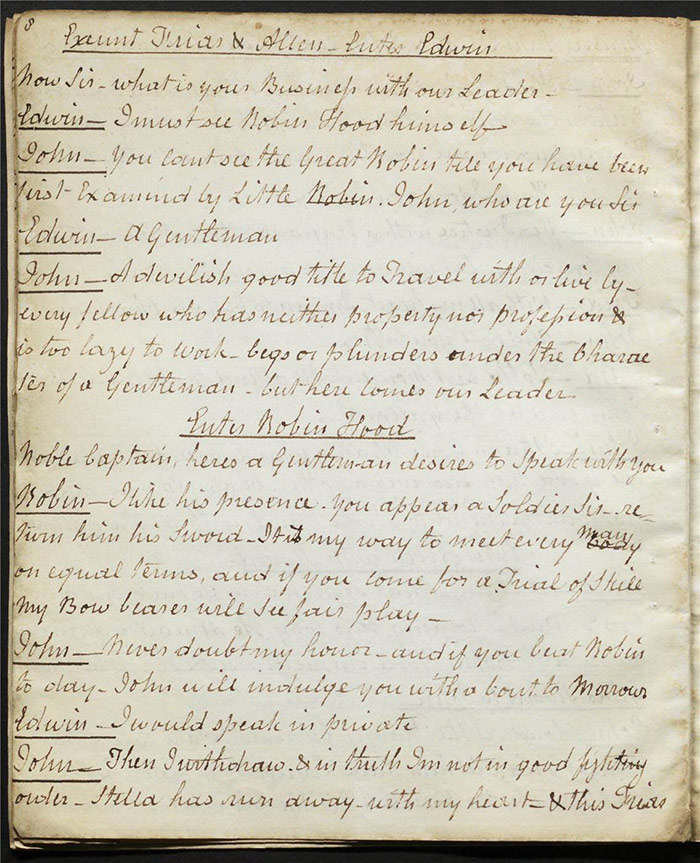 8
Exeunt Friar & Allen - Enter Edwin
Now Sir - what is your Business with our Leader -
Edwin - I must see Robin Hood himself
John - you cant see the Great Robin till you have been
first Examind by Little Robin. John, who are you Sir
Edwin - A Gentleman
John - A devilish good title to Travel with or live by -
every fellow who has neither property nor profession &
is too lazy to work - begs or plunders under the Charac
ter of a Gentleman - but here comes our Leader
Enter Robin Hood
Noble Captain, heres a Gentleman desires to speak with you
Robin - I like his presence. you appear a Soldier Sir - re-
turn him his Sword - It is my way to meet every body man
on equal terms, and if you come for a Trial of Skill
my Bow bearer will see fair play -
John - Never doubt my honor - and if you beat Robin
to day - John will indulge you with a bout to Morrow
Edwin - I would speak in private
John - Then I withdraw - & in truth Im not in good fighting
order - Stella has run away - with my heart - & this Friar